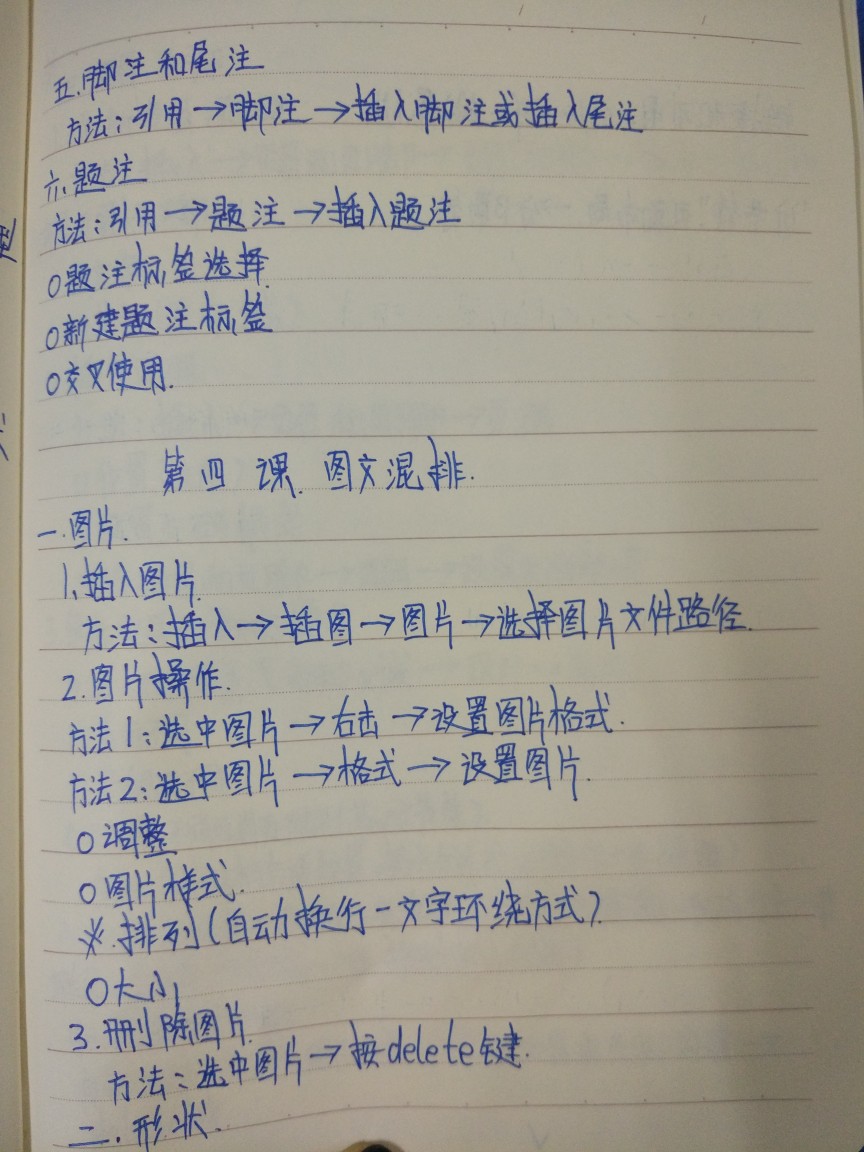 五.脚注和尾注
方法:引用→脚注→插入脚注或插入尾注
六.题注
方法:引用→题注→插入题注
○题注标签选择.
○新建题注标签
○交叉使用.
第四课.图文混排.
一.图片.
1.插入图片.
方法:插入→插图→图片→选择图片文件路径.
2.图片操作.
方法1:选中图片→右击→设置图片格式.
方法2:选中图片→格式→设置图片.
○调整
○图片样式.
※.排列(自动换行-文字环绕方式).
○大小
3.删除图片.
方法:选中图片→按delete键.
二.形状.
型